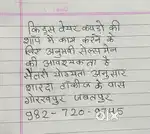 किड्स वेयर कपड़े की
शॉप में काम करने के
लिए अनुभवी सेल्समेन
की आवश्यकता है
सैलरी योग्यता अनुसार
शारदा टॉकीज के पास
गोरखपुर जबलपुर
982-720-9745